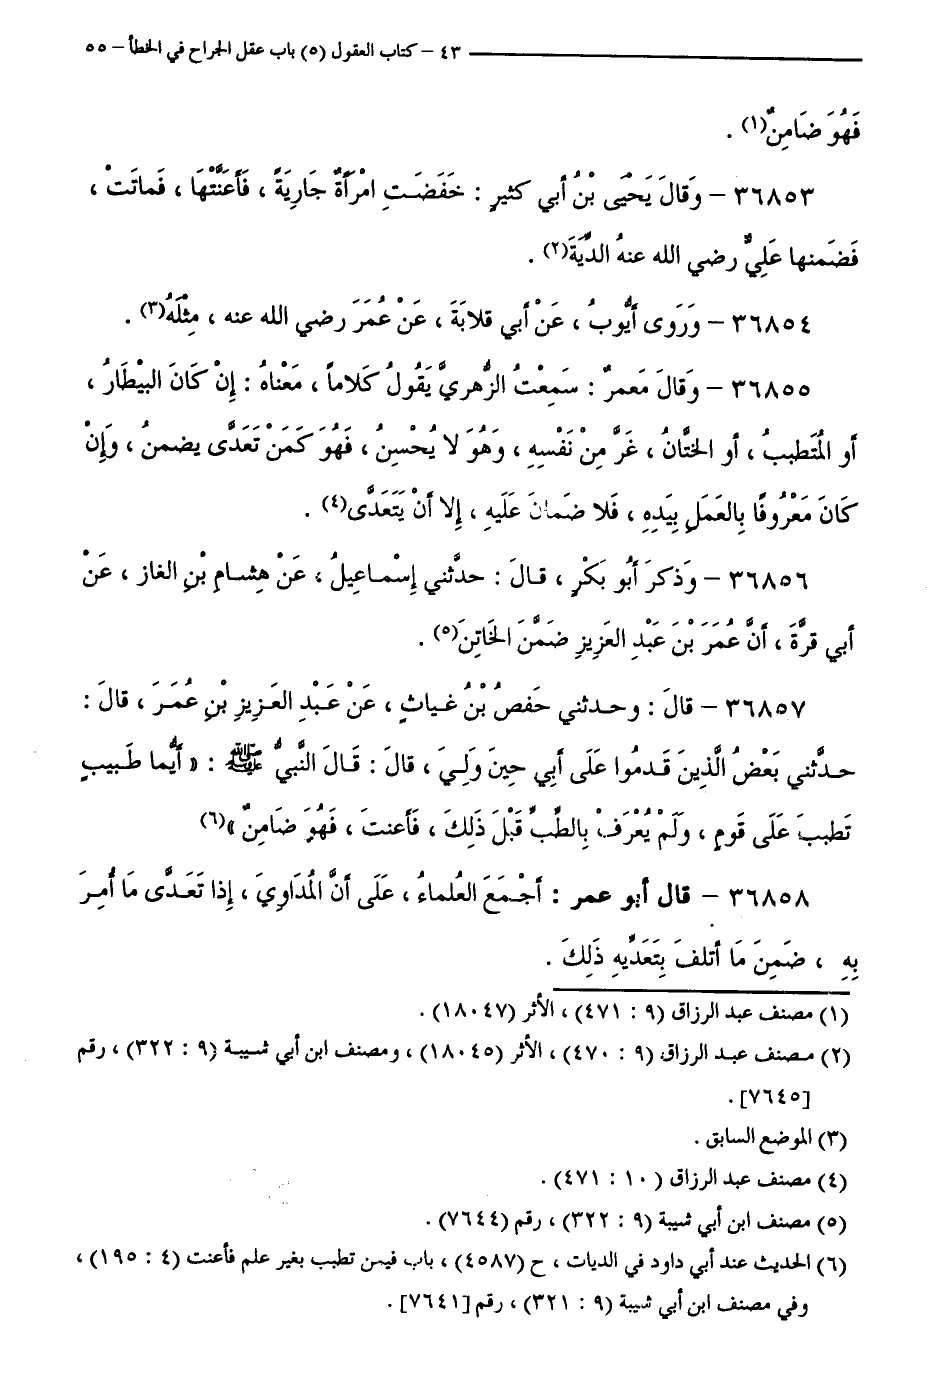 ٤٣ – كتاب العقول (٥) باب عقل الجراح في الخطأ – ٥٥
فَهُوَ ضَامِنٌ(١) .
٣٦٨٥٣ – وَقالَ يَحْيَى بْنُ أبي كثيرٍ : خَفَضَتِ امْرَأَةٌ جَارِيَةً ، فَأَعَنَّتْهَا ، فَماتَتْ ،
فَضَمنها عَلِيٌّ رضي الله عنهُ الدِّيَةَ(٢) .
٣٦٨٥٤ – وَرَوى أَيُّوبُ ، عَنْ أبي قلابَةَ ، عَنْ عُمَرَ رضي الله عنه ، مِثْلَهُ(٣) .
٣٦٨٥٥ – وَقالَ مَعمرٌ : سَمِعْتُ الزُّهريَّ يَقُولُ كَلاماً ، مَعْناهُ : إِنْ كَانَ البَيْطَارُ ،
أو المُتَطببُ ، أو الخَتَّانُ ، غَرَّ مِنْ نَفْسِهِ ، وَهُوَ لا يُحْسِنُ ، فَهُوَ كَمَنْ تَعَدَّى يضمنُ ، وَإِنْ
كَانَ مَعْرُوفًا بِالعَمَلِ بِيَدِهِ ، فَلا ضمَانَ عَلَيهِ ، إِلا أَنْ يَتَعَدَّى(٤) .
٣٦٨٥٦ – وَذكرَ أَبُو بَكْرٍ ، قالَ : حدَّثني إِسْماعيلُ ، عَنْ هِشامِ بْنِ الغاز ، عَنْ
أبي قرَّةَ ، أَنَّ عُمَرَ بْنَ عَبْدِ العَزِيزِ ضَمَّنَ الخَاتِنَ(٥) .
٣٦٨٥٧ – قالَ : وحدثني حَفصُ بْنُ غياثٍ ، عَنْ عَبْدِ العَزِيزِ بْنِ عُمَرَ ، قالَ :
حدَّثني بَعْضُ الَّذِينَ قَدِمُوا عَلَى أَبي حِينَ وَلِيَ ، قالَ : قَالَ النَّبيُّ ﷺ : « أَيُّما طَبيبٍ
تَطببَ عَلَى قَومٍ ، وَلَمْ يُعْرَفْ بِالطِّبِّ قَبْلَ ذَلِكَ ، فَأَعنتَ ، فَهُوَ ضَامِنٌ »(٦)
٣٦٨٥٨ – قال أبو عمر : أَجْمَعَ العُلماءُ ، عَلَى أَنَّ المُدَاوِيَ ، إِذا تَعَدَّى مَا أُمِرَ
بِهِ ، ضَمِنَ مَا أتلفَ بِتَعَدِّيهِ ذَلِكَ .
(١) مصنف عبد الرزاق (٩ : ٤٧١) ، الأثر (١٨٠٤٧) .
(٢) مصنف عبد الرزاق (٩ : ٤٧٠) ، الأثر (١٨٠٤٥) ، ومصنف ابن أبي شيبة (٩ : ٣٢٢) ، رقم
[٧٦٤٥] .
(٣) الموضع السابق .
(٤) مصنف عبد الرزاق ( ١٠ : ٤٧١) .
(٥) مصنف ابن أبي شيبة (٩ : ٣٢٢) ، رقم (٧٦٤٤) .
(٦) الحديث عند أبي داود في الديات ، ح (٤٥٨٧) ، باب فيمن تطبب بغير علم فأعنت (٤ : ١٩٥) ،
وفي مصنف ابن أبي شيبة (٩ : ٣٢١) ، رقم [٧٦٤١] .